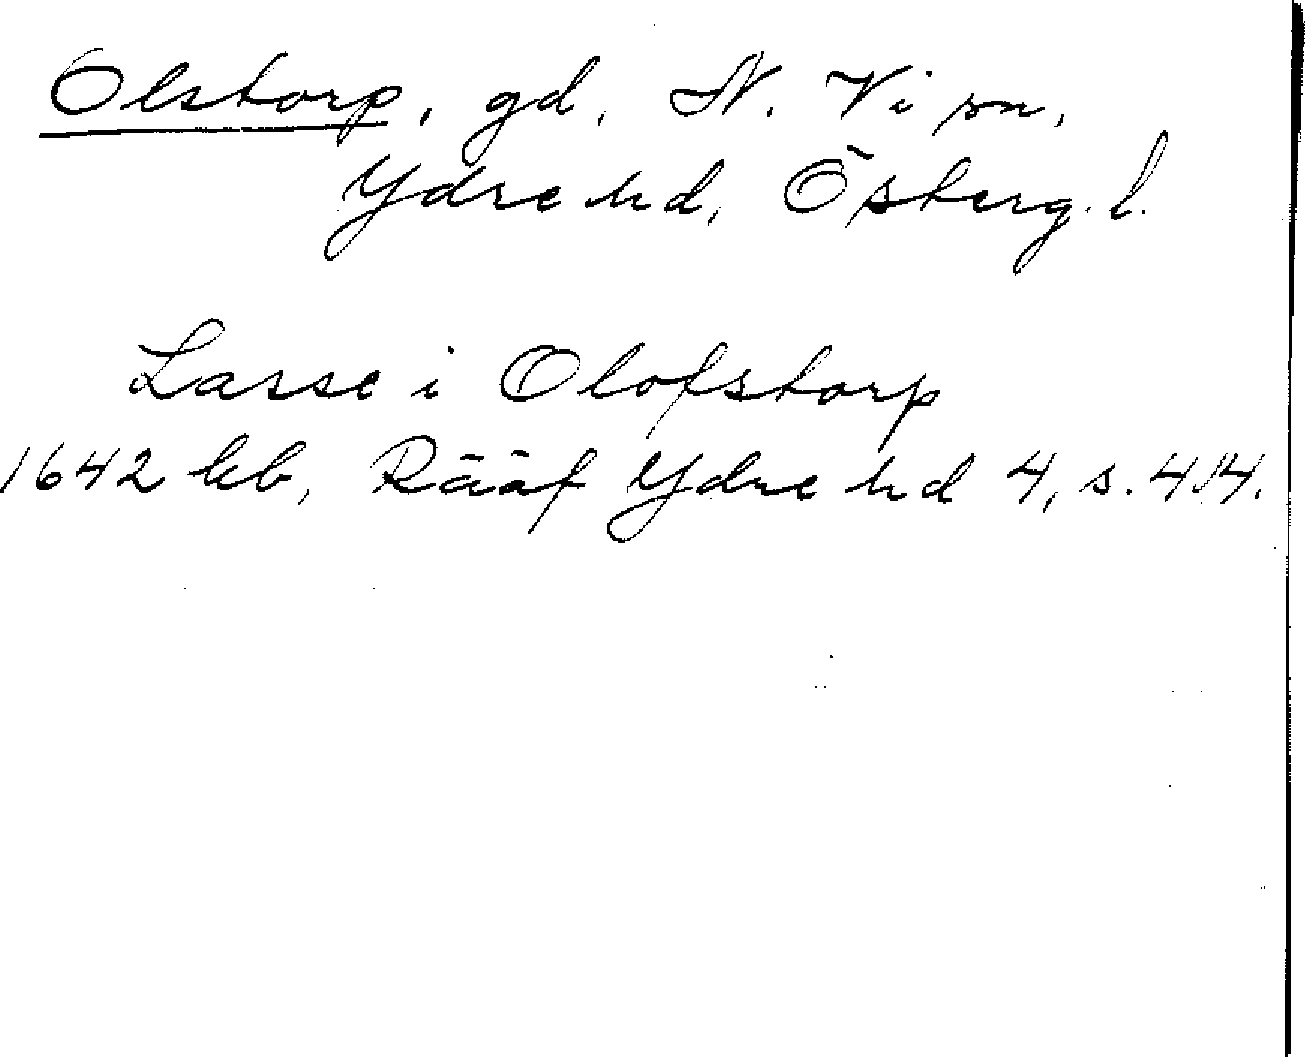 Olstorp, gd, N. Vi sn,
Ydre hd, Österg. l.
Lasse i Olofstorp
1642 kb, Rääf Ydre hd 4, s. 414.